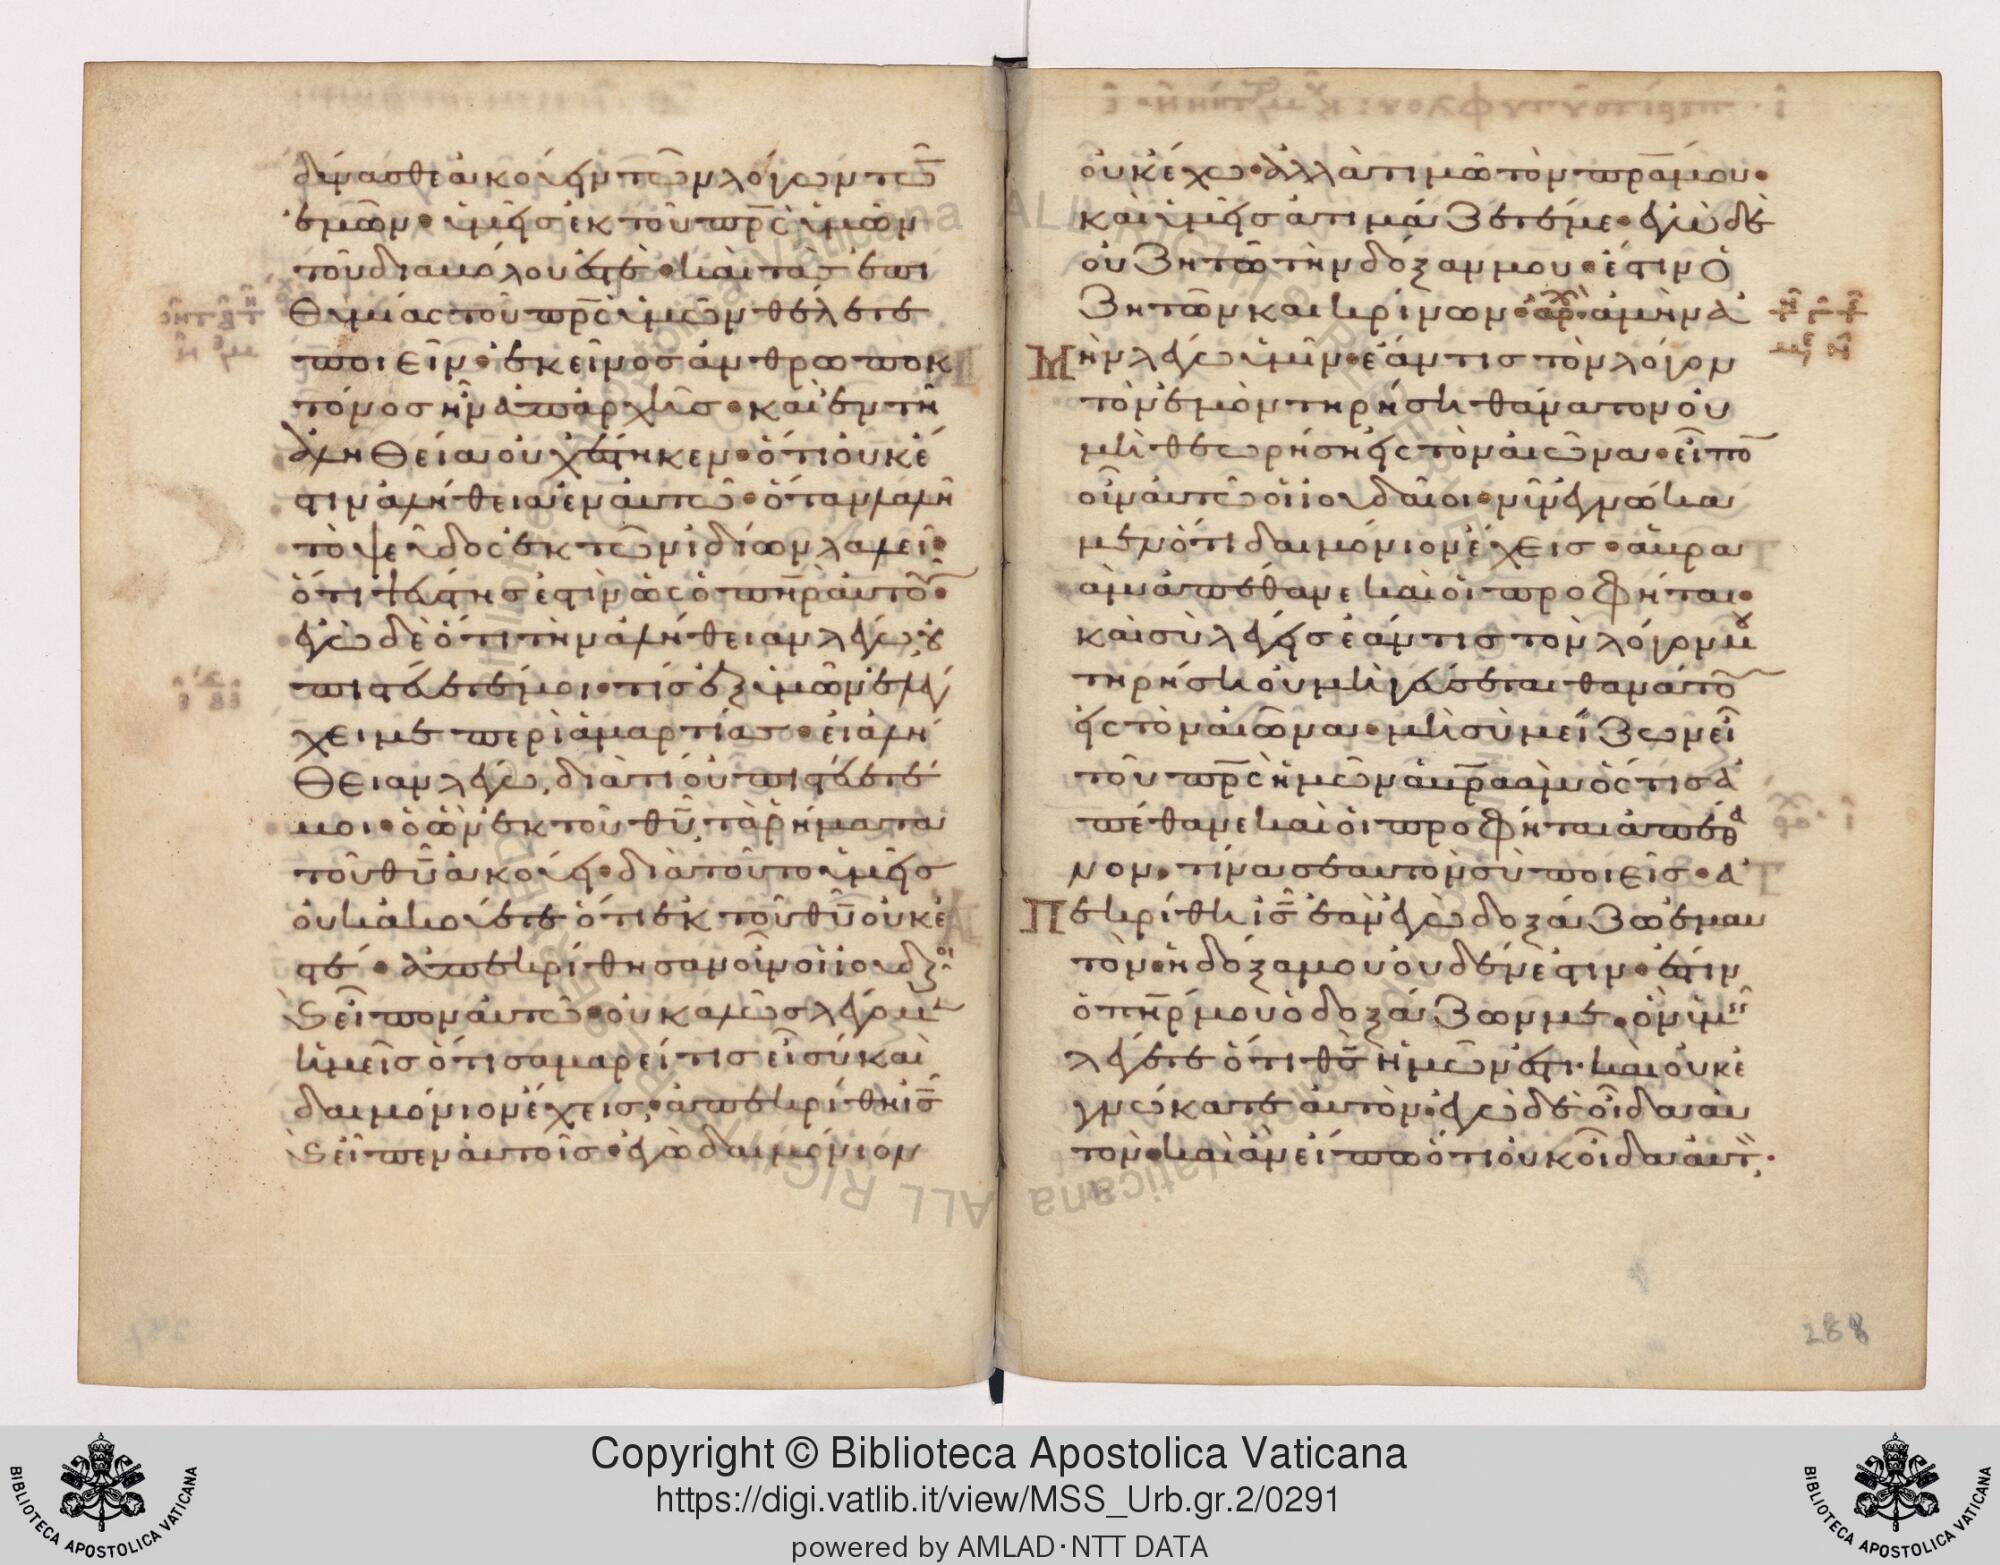 δύνασθε ἀκούειν τῶν λόγων τῶ̅
ἐμῶν· ὑμεῖς ἐκ τοῦ πρ̅ς ὑμῶν
τοῦ διαβόλου ἐστέ· καὶ τὰς ἐπι
θυμίας τοῦ πρ̅ς ὑμῶν θέλετε
ποιεῖν· ἐκεῖνος ἀνθρωποκ
τόνος ἦν ἀπαρχῆς· καὶ ἐν τῆ
ἀληθεία οὐχ ἕστηκεν· ὅτι οὐκ έ
στιν ἀλήθεια ἐν αὐτῶ· ὅταν λαλῆ
τὸ ψεῦδος ἐκ τῶν ιδίων λαλεῖ·
ὅτι ψεύστης ἐστὶν ὡς ὁ πη̅ρ αὐτοῦ·
ἐγὼ δὲ ὅτι τὴν ἀλήθειαν λέγω οὐ
πιστεύετέ μοι· τίς ἐξ ὑμῶν ἐλέγ
χει με περὶ ἁμαρτίας· εἰ ἀλή
θειαν λέγω, διὰ τί οὐ πιστεύετέ
μοι· ὁ ὢν ἐκ τοῦ θυ̅, τὰ ῥήματα
τοῦ θυ̅ ἀκούει· διὰ τοῦτο ὑμεῖς
οὐκ ἀκούετε ὅτι ἐκ τοῦ θυ̅ οὐκ ἐ
στέ· ἀπεκρίθησαν οἶν οἱ ιουδαῖοι
καὶ εῖπον αὐτῶ· οὐ καλῶς λέγομεν
ἡμεῖς ὅτι σαμαρείτης εἶ σύ καὶ
δαιμόνιον έχεις· ἀπεκρίθη ις̅
καὶ εῖπεν αὐτοῖς· ἐγὼ δαιμόνιον
οὐκ έχω· ἀλλὰ τιμῶ τὸν πρ̅α μου·
καὶ ὑμεῖς ἀτιμάζετέ με· ἐγὼ δὲ
οὐ ζητῶ τὴν δόξαν μου· έστιν ὁ
ζητῶν καὶ κρίνων· ἀρχ ἀμὴν ἀ
Μὴν λέγω ὑμῖν· ἐάν τις τὸν λόγον
τὸν ἐμὸν τηρήση θάνατον οὐ
μὴ θεωρήση εἰς τὸν αἰῶνα· εῖπο̅
οἶν αὐτῶ οἱ ιουδαῖοι· νῦν ἐγνώκα
μεν ὅτι δαιμόνιον έχεις· ἀβρα
ὰμ ἀπέθανε καὶ οἱ προφῆται·
καὶ σὺ λέγεις ἐάν τις τὸν λόγον μου
τηρήση οὐ μὴ γεύσεται θανάτου
εἰς τὸν αἰῶνα· μὴ σὺ μείζων εῖ
τοῦ πρ̅ς ἡμῶν ἀβραὰμ ὅστις ἀ
πέθανε καὶ οἱ προφῆται ἀπέθα
νον· τίνα σεαυτὸν σὺ ποιεῖς· ἀ
Πεκρίθη ις̅ ἐὰν ἐγὼ δοξάζω ἐμαυ
τὸν· ἡ δόξα μου οὐδέν ἐστιν· ἔστιν
ὁ πη̅ρ μου ὁ δοξάζων με· ὃν ὑμεῖς
λέγετε ὅτι θς̅ ἡμῶν ἐστι· καὶ οὐκ ἐ
γνώκατε αὐτὸν· ἐγὼ δὲ οἶδα αὐ
τὸν· καὶ ἐὰν εἴπω ὅτι οὐκ οἶδα αὐτὸν,
288
Copyright © Biblioteca Apostolica Vaticana
https://digi.vatlib.it/view/MSS_Urb.gr.2/0291
powered by AMLAD·NTT DATA
BIBLIOTECA APOSTOLICA VATICANA
BIBLIOTECA APOSTOLICA VATICANA